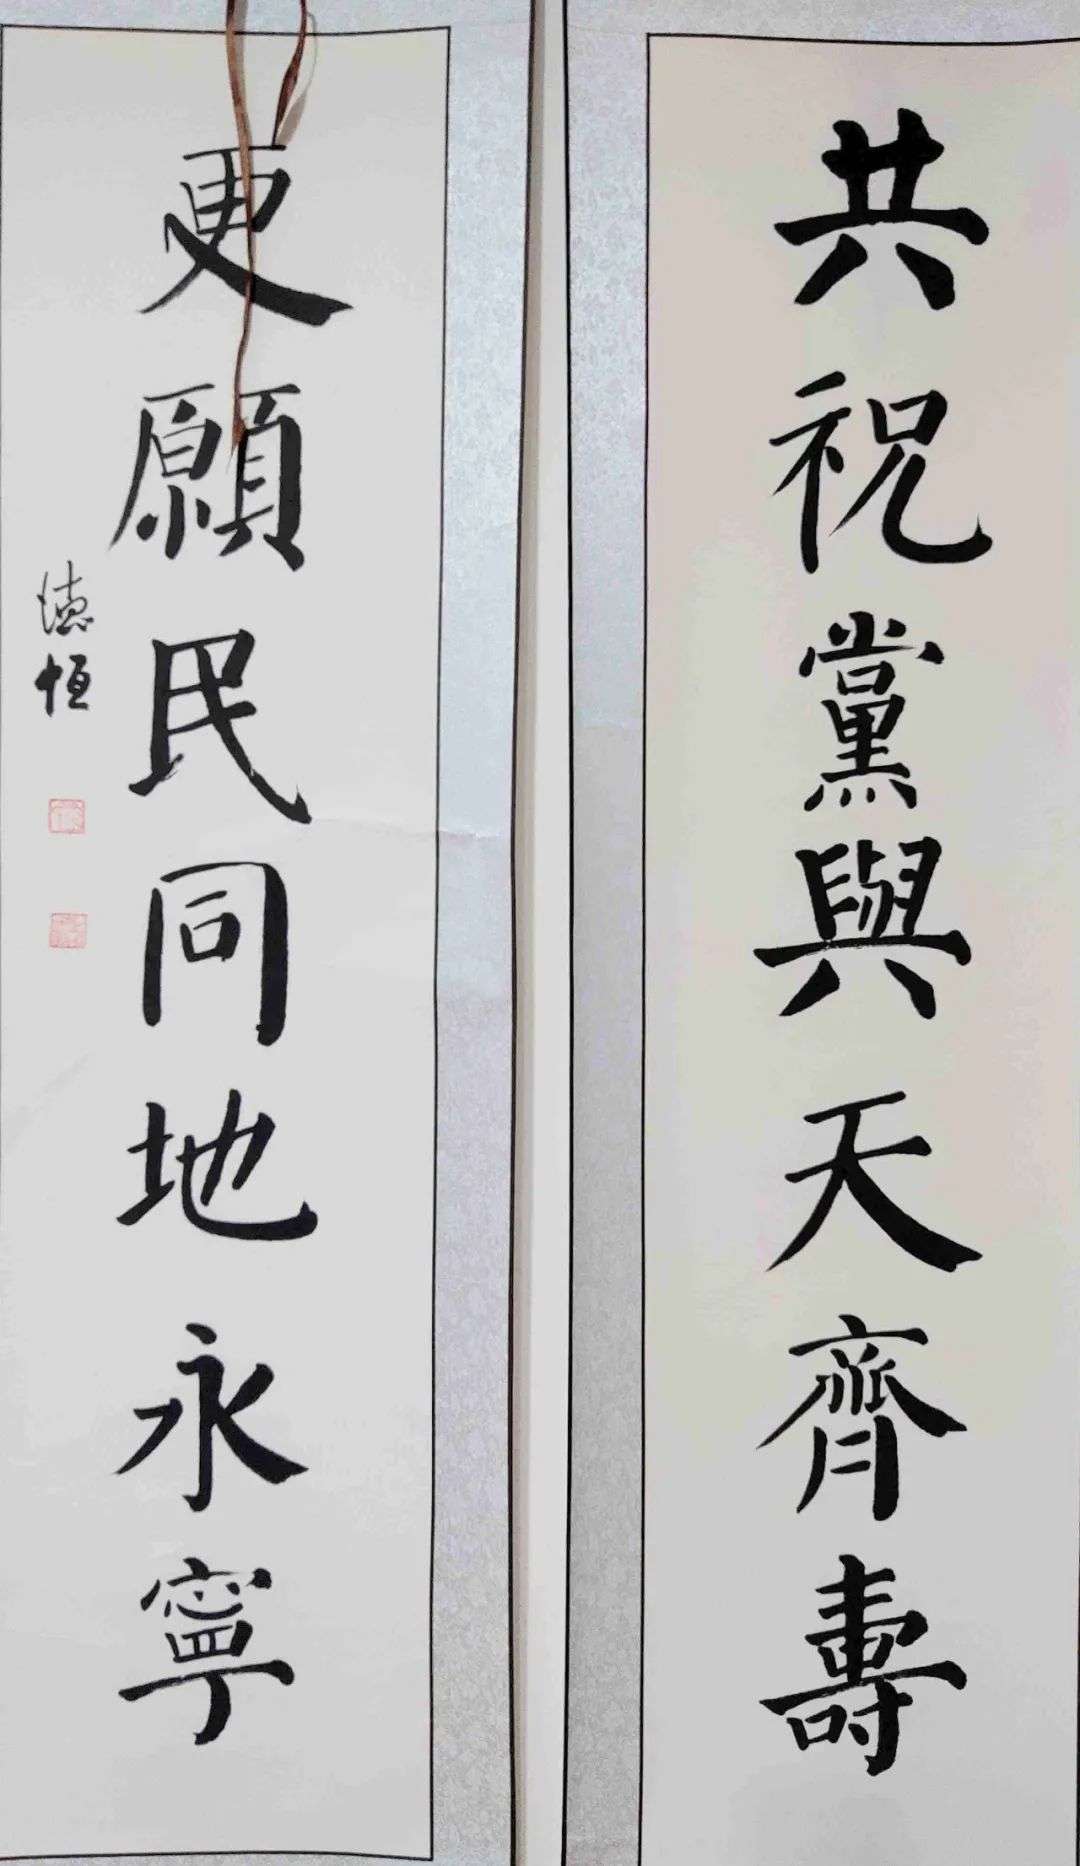 共祝黨與天齊壽
更願民同地永寧
德恒